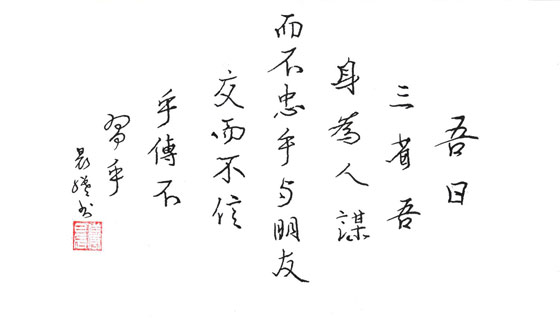 吾日
三省吾
身為人謀
而不忠乎与朋友
交而不信
乎傳不
習乎
晨书